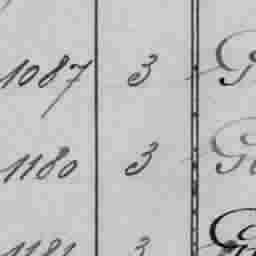 1087 3 G
1180 3 G
1181 3 G